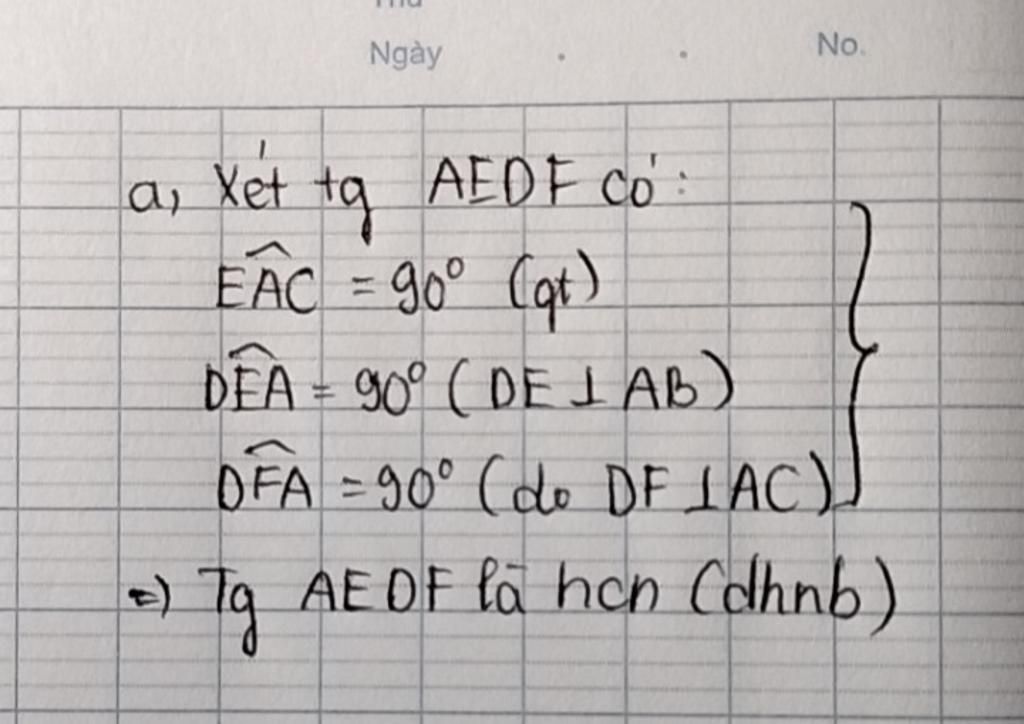 Ngày . . No.
a, Xét tg AEDF có:
\widehat{EAC} = 90° (gt)
\widehat{DEA} = 90° (DE ⊥ AB)
\widehat{DFA} = 90° (do DF ⊥ AC)
=) Tg AEDF là hcn (dhnb)